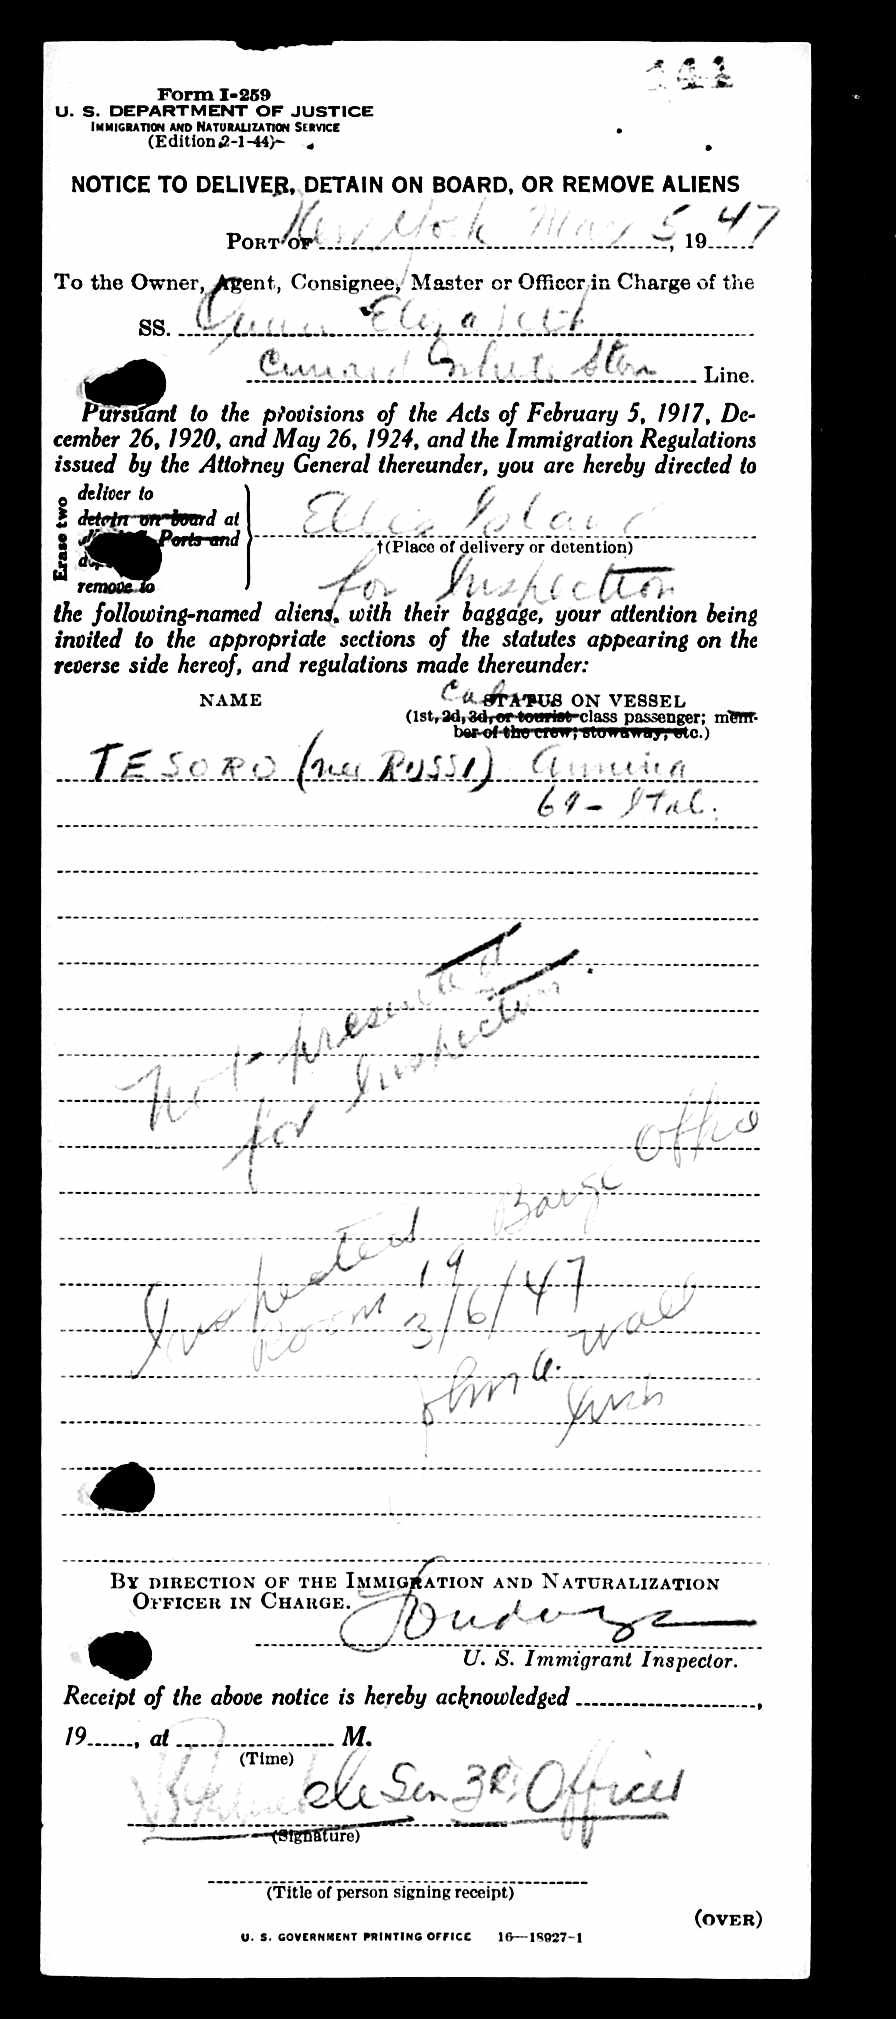 Form I-259
U. S. DEPARTMENT OF JUSTICE
IMMIGRATION AND NATURALIZATION SERVICE
(Edition 2-1-44)
NOTICE TO DELIVER, DETAIN ON BOARD, OR REMOVE ALIENS
PORT OF New York May 5, 1947
To the Owner, Agent, Consignee, Master or Officer in Charge of the
SS. Queen Elizabeth
Cunard White Star Line.
Pursuant to the provisions of the Acts of February 5, 1917, De-
cember 26, 1920, and May 26, 1924, and the Immigration Regulations
issued by the Attorney General thereunder, you are hereby directed to
Erase two
deliver to
detain on board at
Ports and
remove to
Ellis Island
†(Place of delivery or detention)
for Inspection
the following-named aliens, with their baggage, your attention being
invited to the appropriate sections of the statutes appearing on the
reverse side hereof, and regulations made thereunder:
NAME
STATUS ON VESSEL
(1st, 2d, 3d, or tourist class passenger; mem-
ber of the crew; stowaway, etc.)
TESORO (nee ROSSI)
69 - Ital.
Not presented
for Inspection.
Inspected Barge Office
Room 19
3/6/47
John A. Wall
BY DIRECTION OF THE IMMIGRATION AND NATURALIZATION
OFFICER IN CHARGE.
U. S. Immigrant Inspector.
Receipt of the above notice is hereby acknowledged ,
19 , at M.
(Time)
Sen 3rd Officer
(Signature)
(Title of person signing receipt)
(OVER)
U. S. GOVERNMENT PRINTING OFFICE 16—18927-1